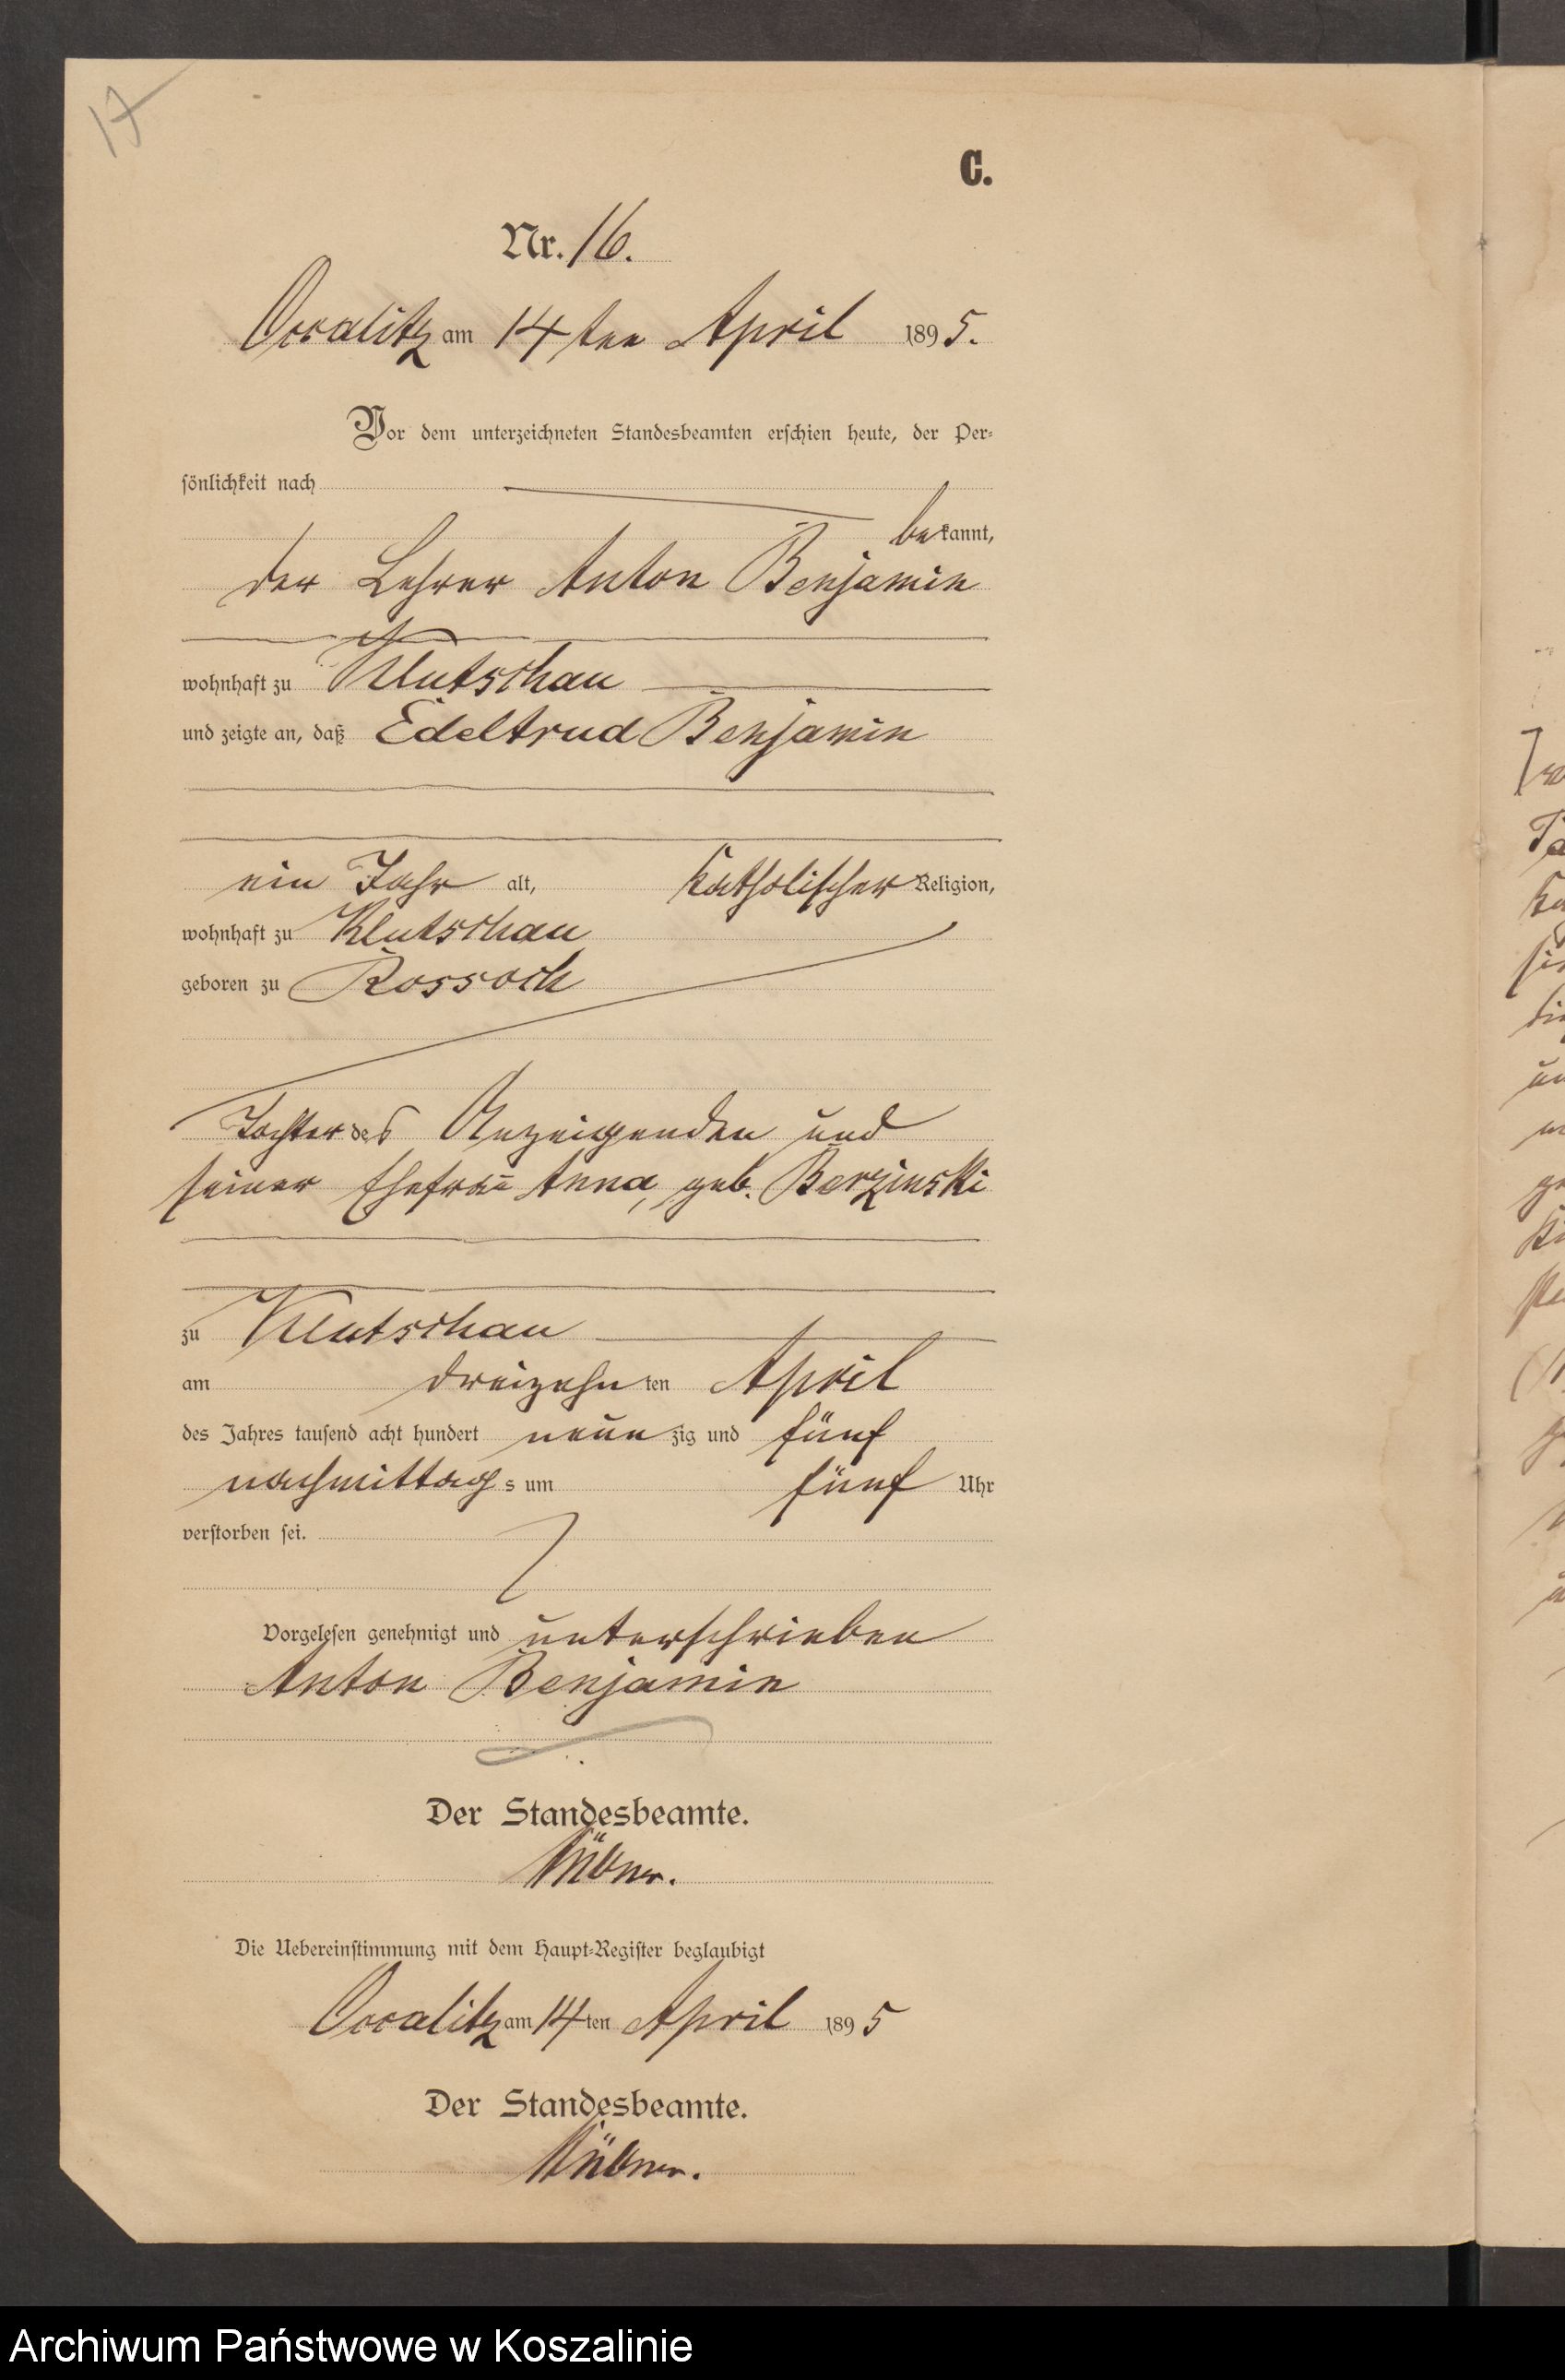 17
C.
Nr. 16.
Occalitz am 14ten April 1895.
Vor dem unterzeichneten Standesbeamten erschien heute, der Per-
sönlichkeit nach
bekannt,
der Lehrer Anton Benjamin
wohnhaft zu Klutschau
und zeigte an, daß Edeltrud Benjamin
ein Jahr alt, katholischer Religion,
wohnhaft zu Klutschau
geboren zu Rossoch
Tochter des Anzeigenden und
seiner Ehefrau Anna, geb. Berzinski
zu Klutschau
am dreizehnten April
des Jahres tausend acht hundert neunzig und fünf
nachmittags um fünf Uhr
verstorben sei.
Vorgelesen genehmigt und unterschrieben
Anton Benjamin
Der Standesbeamte.
Die Uebereinstimmung mit dem Haupt-Register beglaubigt
Occalitz am 14ten April 1895
Der Standesbeamte.
Archiwum Państwowe w Koszalinie